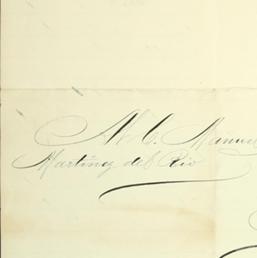 Al C. Manuel
Martinez del Rio